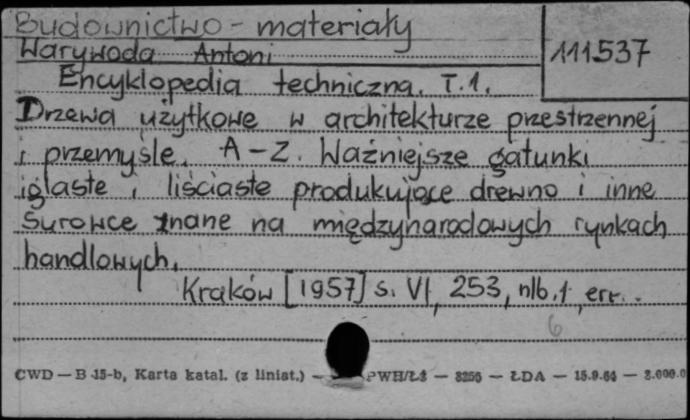 Budownictwo - materiały
111537
Warywoda Antoni
Encyklopedia techniczna. T.1.
Drzewa użytkowe w architekturze przestrzennej
i przemyśle. A-Z. Ważniejsze gatunki
iglaste i liściaste produkujące drewno i inne
surowce znane na międzynarodowych rynkach
handlowych.
Kraków [1957] s. VI, 253, nlb. 1, err..
6
CWD — B 15-b, Karta katal. (z liniat.) — PWH/Ł3 — 8256 — ŁDA — 15.9.64 —